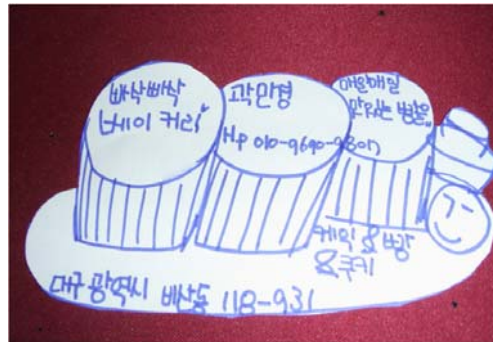 바삭바삭
베이커리
곽민경
H.p 010-9690-9807
매일매일
맛있는 빵을
케익 & 빵
& 쿠키
대구광역시 비산동 118-931